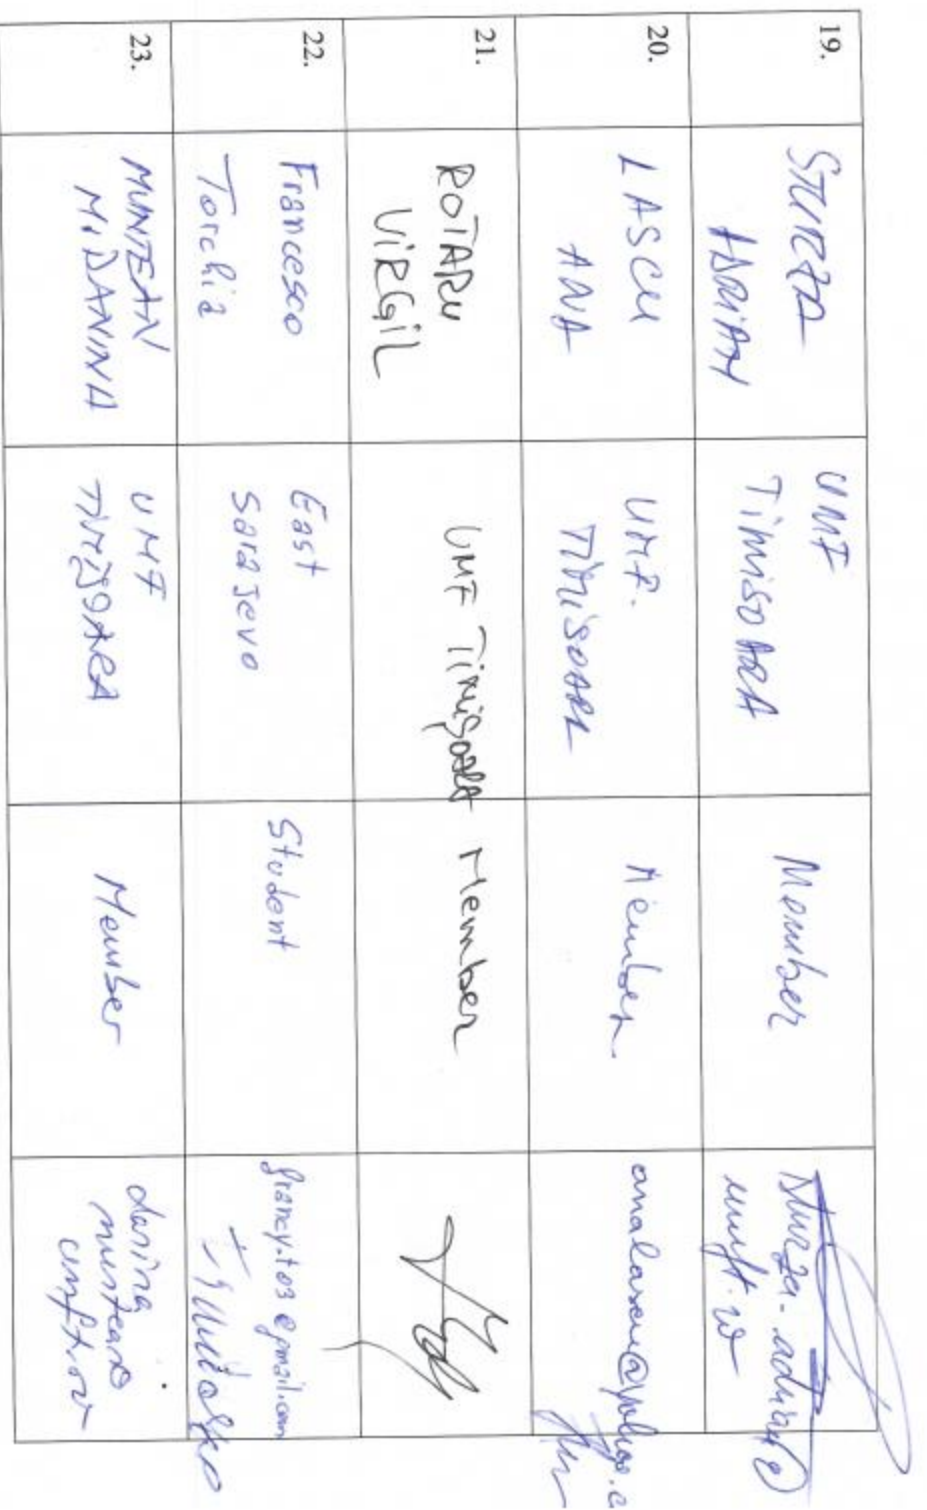 19.
STURZA
ADRIAN
UMF
TIMISOARA
Member
sturza.adrian@
umft.ro
20.
LASCU
ANA
UMF.
TIMISOARA
Member
21.
ROTARU
VIRGIL
UMF Timişoara
Member
22.
Francesco
Torchia
East
Sarajevo
Student
23.
MUNTEAN
UMF
TIMIŞOARA
Member
danina
muntean@
umft.ro